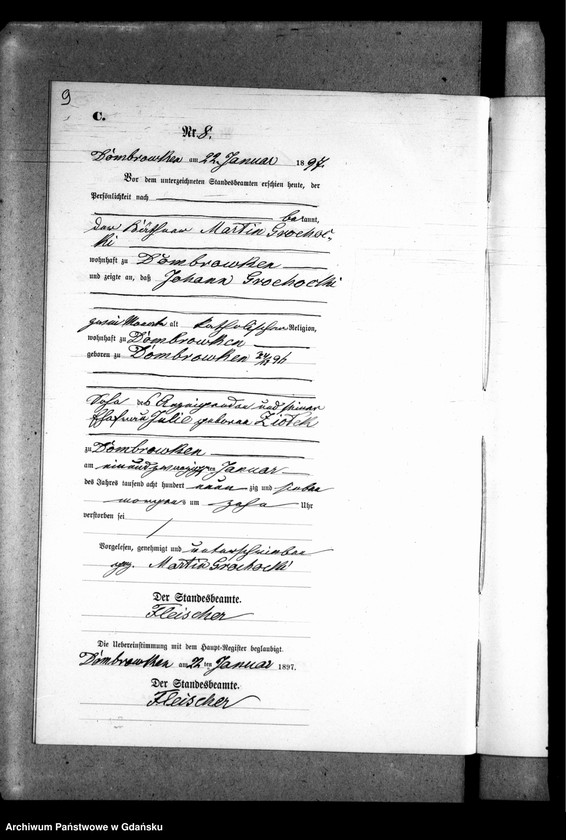 9
C.
Nr. 8.
Dombrowken am 22. Januar 1897.
Vor dem unterzeichneten Standesbeamten erschien heute, der
Persönlichkeit nach
bekannt,
der Käthner Martin Grochoc-
ki
wohnhaft zu Dombrowken
und zeigte an, daß Johann Grochocki
zwei Monate alt katholischer Religion,
wohnhaft zu Dombrowken
geboren zu Dombrowken 96
Sohn des Anzeigenden und seiner
Ehefrau Julie geborene
zu Dombrowken
am einundzwanzigsten Januar
des Jahres tausend acht hundert neunzig und sieben
morgens um zehn Uhr
verstorben sei
Vorgelesen, genehmigt und unterschrieben
gez. Martin Grochocki
Der Standesbeamte.
Fleischer
Die Uebereinstimmung mit dem Haupt-Register beglaubigt.
Dombrowken am 22 ten Januar 1897.
Der Standesbeamte.
Fleischer
Archiwum Państwowe w Gdańsku